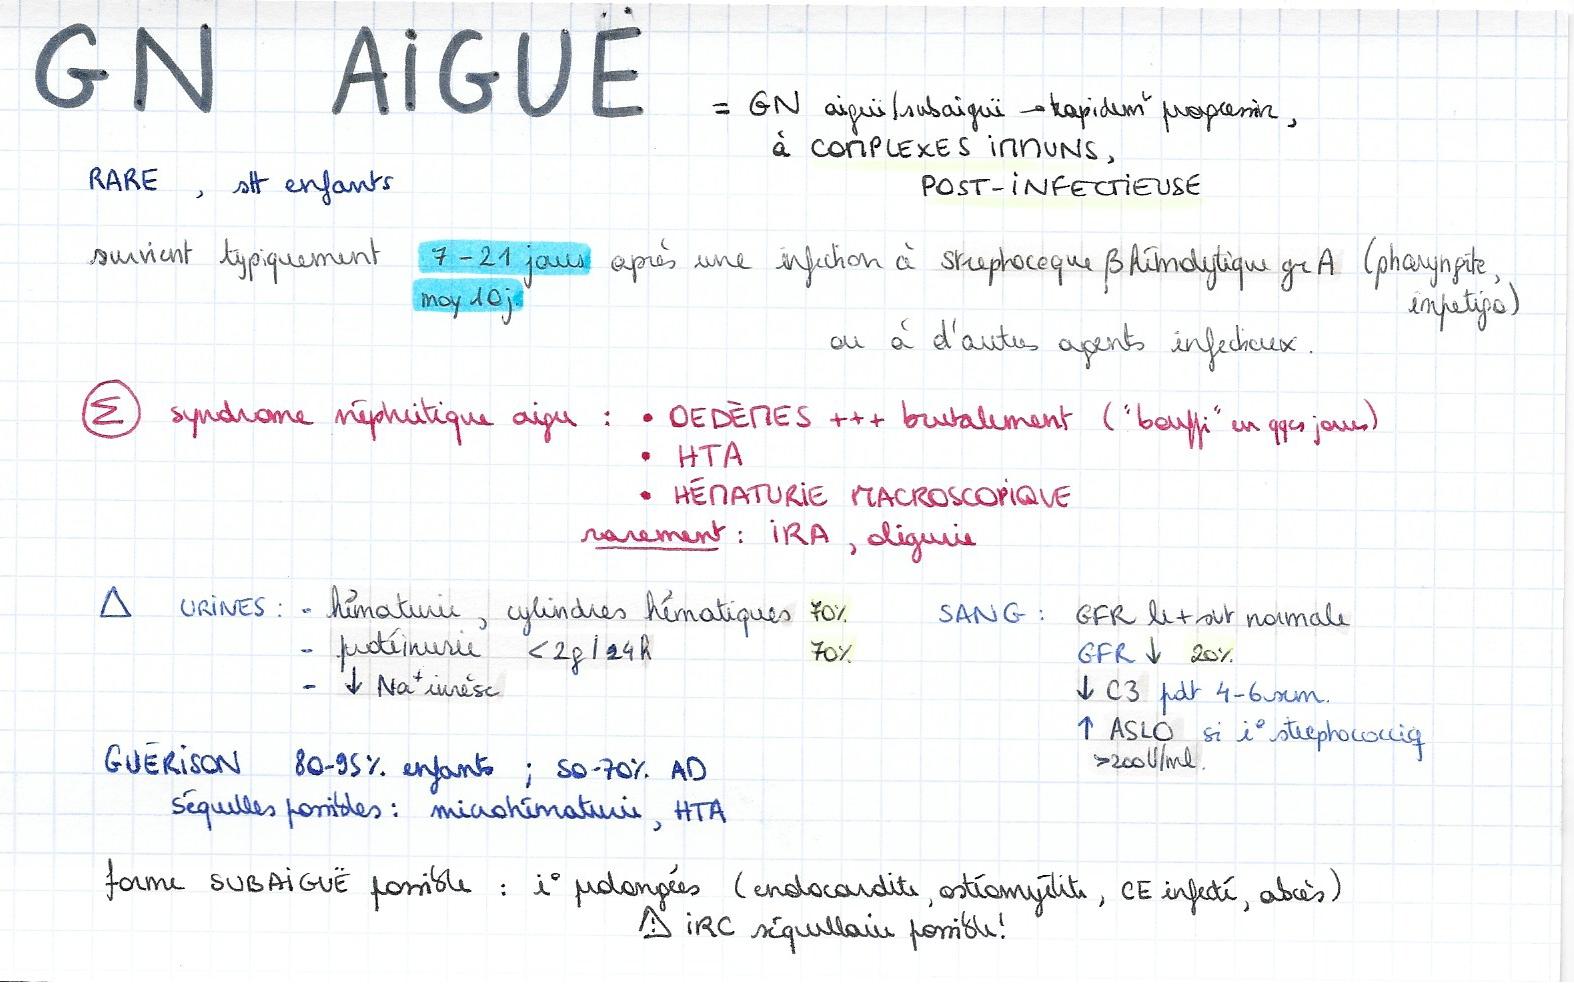 GN AIGUË
= GN aiguë/subaiguë → rapidemt progressive,
à COMPLEXES IMMUNS,
POST-INFECTIEUSE
RARE , stt enfants
survient typiquement 7-21 jours après une infection à streptocoque β hémolytique gr A (pharyngite,
moy 10j impetigo)
ou à d'autres agents infectieux.
Σ syndrome néphritique aigu : • OEDÈMES +++ brutalement ("bouffi" en qqes jours)
• HTA
• HÉMATURIE MACROSCOPIQUE
rarement : IRA , oligurie
Δ URINES : - hématurie, cylindres hématiques 70% SANG : GFR le + svt normale
- protéinurie < 2g/24h 70% GFR ↓ 20%
- ↓ Na+ urinésc ↓ C3 pdt 4-6 sem.
↑ ASLO si i° streptococciq
>200U/ml.
GUÉRISON 80-95% enfants ; 50-70% AD
séquelles possibles : microhématurie, HTA
forme SUBAIGUË possible : i° prolongées (endocardite, ostéomyélite, CE infecté, abcès)
⚠ IRC séquellaire possible!